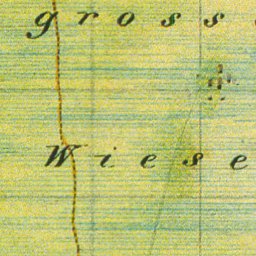 gross
Wiese